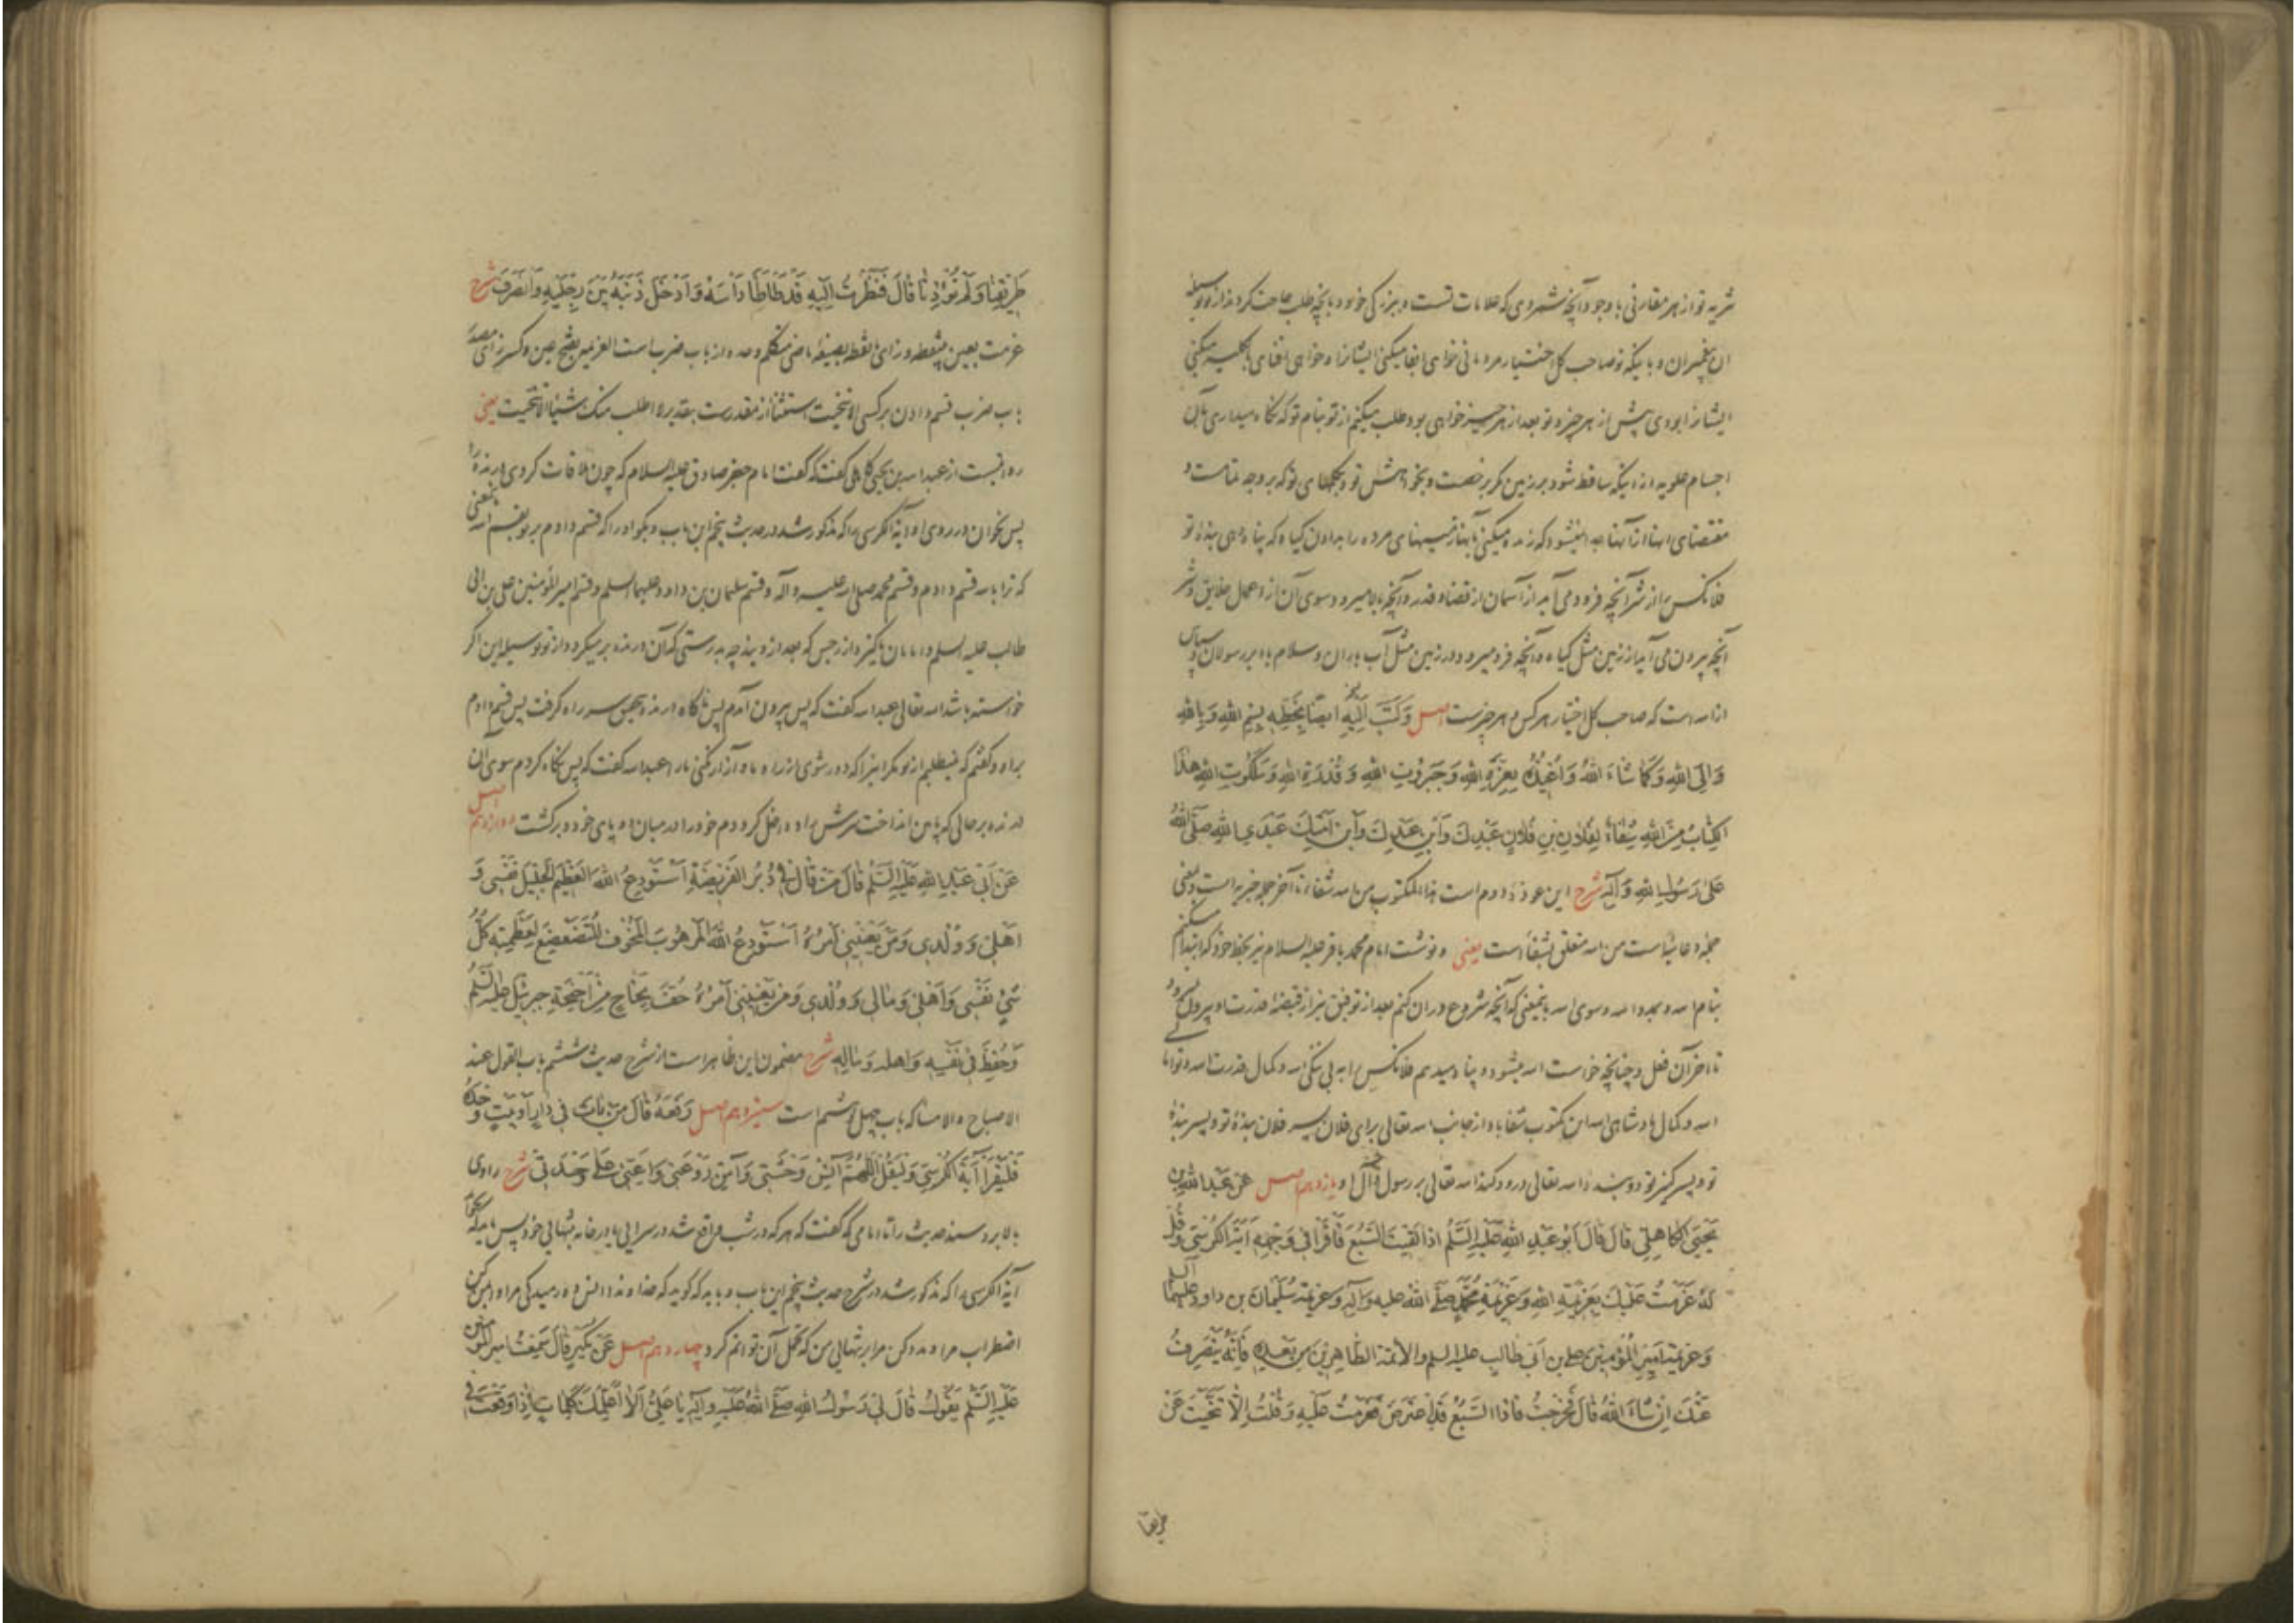 شریه تو از هر مقارنی با وجود آنچه شمردی که علامات تست و ببزرکی خود و بآنچه طلب حاجت کردند از تو بوسیله
ان پیغمبران و باینکه تو صاحب کل اختیار مردمانی خواهی ابقا میکنی ایشانرا و خواهی افنای بالکلیه میکنی
ایشانرا بودی پیش از هر چیز و تو بعد از هر چیز خواهی بود طلب میکنم از تو بنام تو که نکاه میداری بآن
اجسام علویه را از اینکه ساقط شود بر زمین مکر برخصت و بخواهش تو و بحکمهای تو که بر وجه تمامست و
مقتضای انها از آنها جدا نمیشود که زنده میکنی بآنها زمینهای مرده را بدادن کیاه که پناه دهی بنده تو
فلانکس را از شر آنچه فرود می آید از آسمان از قضا و قدر و آنچه بالا میرود سوی آن از اعمال خلایق و شر
آنچه بیرون می آید از زمین مثل کیاه و آنچه فرو میرود در زمین مثل آب باران و سلام باد بر رسولان و سپاس
از الله است که صاحب کل اختیار هر کس و هر چیزست اصل وَكَتَبَ اِلَيْهِ ایضاً بِخَطِّهِ بِسْمِ اللهِ وَبِاللهِ
وَاِلَى اللهِ وَكَمَا شَاءَ اللهُ وَاُعِيذُهُ بِعِزَّةِ اللهِ وَجَبَرُوتِ اللهِ وَقُدْرَةِ اللهِ وَمَلَكُوتِ اللهِ هٰذَا
الْكِتَابُ مِنَ اللهِ شِفَاءٌ لِفُلَانِ بْنِ فُلَانٍ عَبْدِكَ وَابْنِ عَبْدِكَ وَابْنِ اَمَتِكَ عَبْدَيِ اللهِ صَلَّى اللهُ
عَلَى رَسُولِ اللهِ وَآلِهِ شرح این عوذهٔ دوم است هذا المکتوب من الله شفاء تا آخر جمله خبریه است بمعنی
جمله دعائیه است من الله متعلق بشفاء است یعنی و نوشت امام محمد باقر علیه السلام نیز بخط خود که ابتدا میکنم
بنام الله و بمدد الله و سوی الله باینمعنی که آنچه شروع در ان کنم بعد از توفیق نیز از قبضهٔ قدرت او بیرون نمیرود
تا اخر آن فعل و چنانچه خواست الله میشود و پناه میدهم فلانکس را به بی ننکی الله و کمال قدرت الله و توانا
الله و کمال پادشاهی الله این مکتوب شفا باد از جانب الله تعالی برای فلان پسر فلان بندهٔ تو و پسر بندهٔ
تو و پسر کنیز تو دو بنده الله تعالی درود کند الله تعالی بر رسول خود و آل او یازدهم اصل عَنْ عَبْدِ اللهِ بْنِ
يَحْيَى الْكَاهِلِيِّ قَالَ قَالَ اَبُو عَبْدِ اللهِ عَلَيْهِ السَّلَمُ اِذَا لَقِيتَ السَّبُعَ فَاقْرَأْ فِي وَجْهِهِ آيَةَ الْكُرْسِيِّ وَقُلْ
لَهُ عَزَمْتُ عَلَيْكَ بِعَزِيمَةِ اللهِ وَعَزِيمَةِ مُحَمَّدٍ صَلَّى اللهُ علیه وآله وعزیمة سُلَيْمَانَ بن داود علیهما السلم
وَعزیمة اَمِيرِ الْمُؤْمِنِينَ عَلِيِّ بن اَبِي طَالِبٍ علیه السلم والائمة الطَّاهِرِينَ مِنْ بَعْدِهِ فَاِنَّهُ يَنْصَرِفُ
عَنْكَ اِنْ شَاءَ اللهُ قَالَ فَخَرَجْتُ فَاِذَا السَّبُعُ قَدِ اعْتَرَضَ فَعَزَمْتُ عَلَيْهِ وَقُلْتُ اِلَّا تَنَحَّيْتَ عَنْ
طریقنا
طَرِيقِنَا وَلَمْ تُؤْذِنَا قَالَ فَنَظَرْتُ اِلَيْهِ قَدْ طَأْطَأَ رَأْسَهُ وَاَدْخَلَ ذَنَبَهُ بَيْنَ رِجْلَيْهِ وَانْصَرَفَ شرح
عزمت بعین بینقطه و زای نقطه بصیغه ماضی متکلم وحده از باب ضرب است العزیمه بفتح عین و کسر زای مصدر
باب ضرب قسم دادن بر کسی الا تنحیت استثنا از مقدرست بتقدیر لا اطلب منک شیئا الا تنحیت یعنی
روایتست از عبدالله بن یحیی کاهلی گفت که گفت امام جعفر صادق علیه السلام که چون ملاقات کردی درنده را
پس بخوان در روی او آیة الکرسی را که مذکور شد در حدیث پنجم این باب و بکو او را که قسم دادم بر تو بقسم الله بمعنی
که ترا بالله قسم دادم و قسم محمد صلی الله علیه وآله و قسم سلیمان بن داود علیهما السلم و قسم امیر المؤمنین علی بن ابی
طالب علیه السلم و امامان پاکیزه از رجس که بعد از ویند چه بدرستی که آن درنده برمیکردد از تو بوسیله این اکر
خواسته باشد الله تعالی عبدالله گفت که پس بیرون آمدم پس ناکاه درنده بتحقیق سر راه کرفت پس قسم دادم
بر او و گفتم که نمیطلبم از تو مکر اینرا که دور شوی از راه ما و آزار نکنی ما را عبدالله گفت که پس نکاه کردم سوی ان
درنده بر حالی که پایین انداخت سرش را و داخل کرد دم خود را در میان دو پای خود و برکشت دوازدهم اصل
عَنْ اَبِي عَبْدِ اللهِ عَلَيْهِ السَّلَمُ قَالَ مَنْ قَالَ فِي دُبُرِ الْفَرِيضَةِ اَسْتَوْدِعُ اللهَ الْعَظِيمَ الْجَلِيلَ نَفْسِي وَ
اَهْلِي وَوُلْدِي وَمَنْ يَعْنِينِي اَمْرُهُ اَسْتَوْدِعُ اللهَ الْمَرْهُوبَ الْمَخُوفَ الْمُتَضَعْضِعَ لِعَظَمَتِهِ كُلُّ
شَيْءٍ نَفْسِي وَاَهْلِي وَمَالِي وَوُلْدِي وَمَنْ يَعْنِينِي اَمْرُهُ حُفَّ بِجَنَاحٍ مِنْ اَجْنِحَةِ جبرئیل علیه السلم
وَحُفِظَ فِي نَفْسِهِ وَاهله وَمَالِهِ شرح مضمون این ظاهر است از شرح حدیث ششم باب القول عند
الاصباح والامسا که باب چهل و ششم است سیزدهم اصل رَفَعَهُ قَالَ مَنْ بَاتَ فِي دَارٍ اَوْ بَيْتٍ وَحْدَهُ
فَلْيَقْرَأْ آيَةَ الْكُرْسِيِّ وَلْيَقُلْ اَللّٰهُمَّ آنِسْ وَحْشَتِي وَآمِنْ رَوْعَتِي وَاَعِنِّي عَلَى وَحْدَتِي شرح راوی
بالا برد سند حدیث را تا امامی که گفت که هر که در شب واقع شد در سرایی یا در خانه بتنهایی خود پس باید که بخواند
آیة الکرسی را که مذکور شد در شرح حدیث پنجم این باب و باید که کوید که خداوندا انس ده رمیدکی مرا و ایمن کن
اضطراب مرا و مدد کن مرا بر تنهایی من که تحمل آن توانم کرد چهاردهم اصل عَنْ بُكَيْرٍ قَالَ سَمِعْتُ امیر المؤمنین
عَلَيْهِ السَّلَمُ يَقُولُ قَالَ لِي رَسُولُ اللهِ صَلَّى اللهُ عَلَيْهِ وَآلِهِ يَا عَلِيُّ اَلَا اُعَلِّمُكَ كَلِمَاتٍ اِذَا وَقَعْتَ فِي